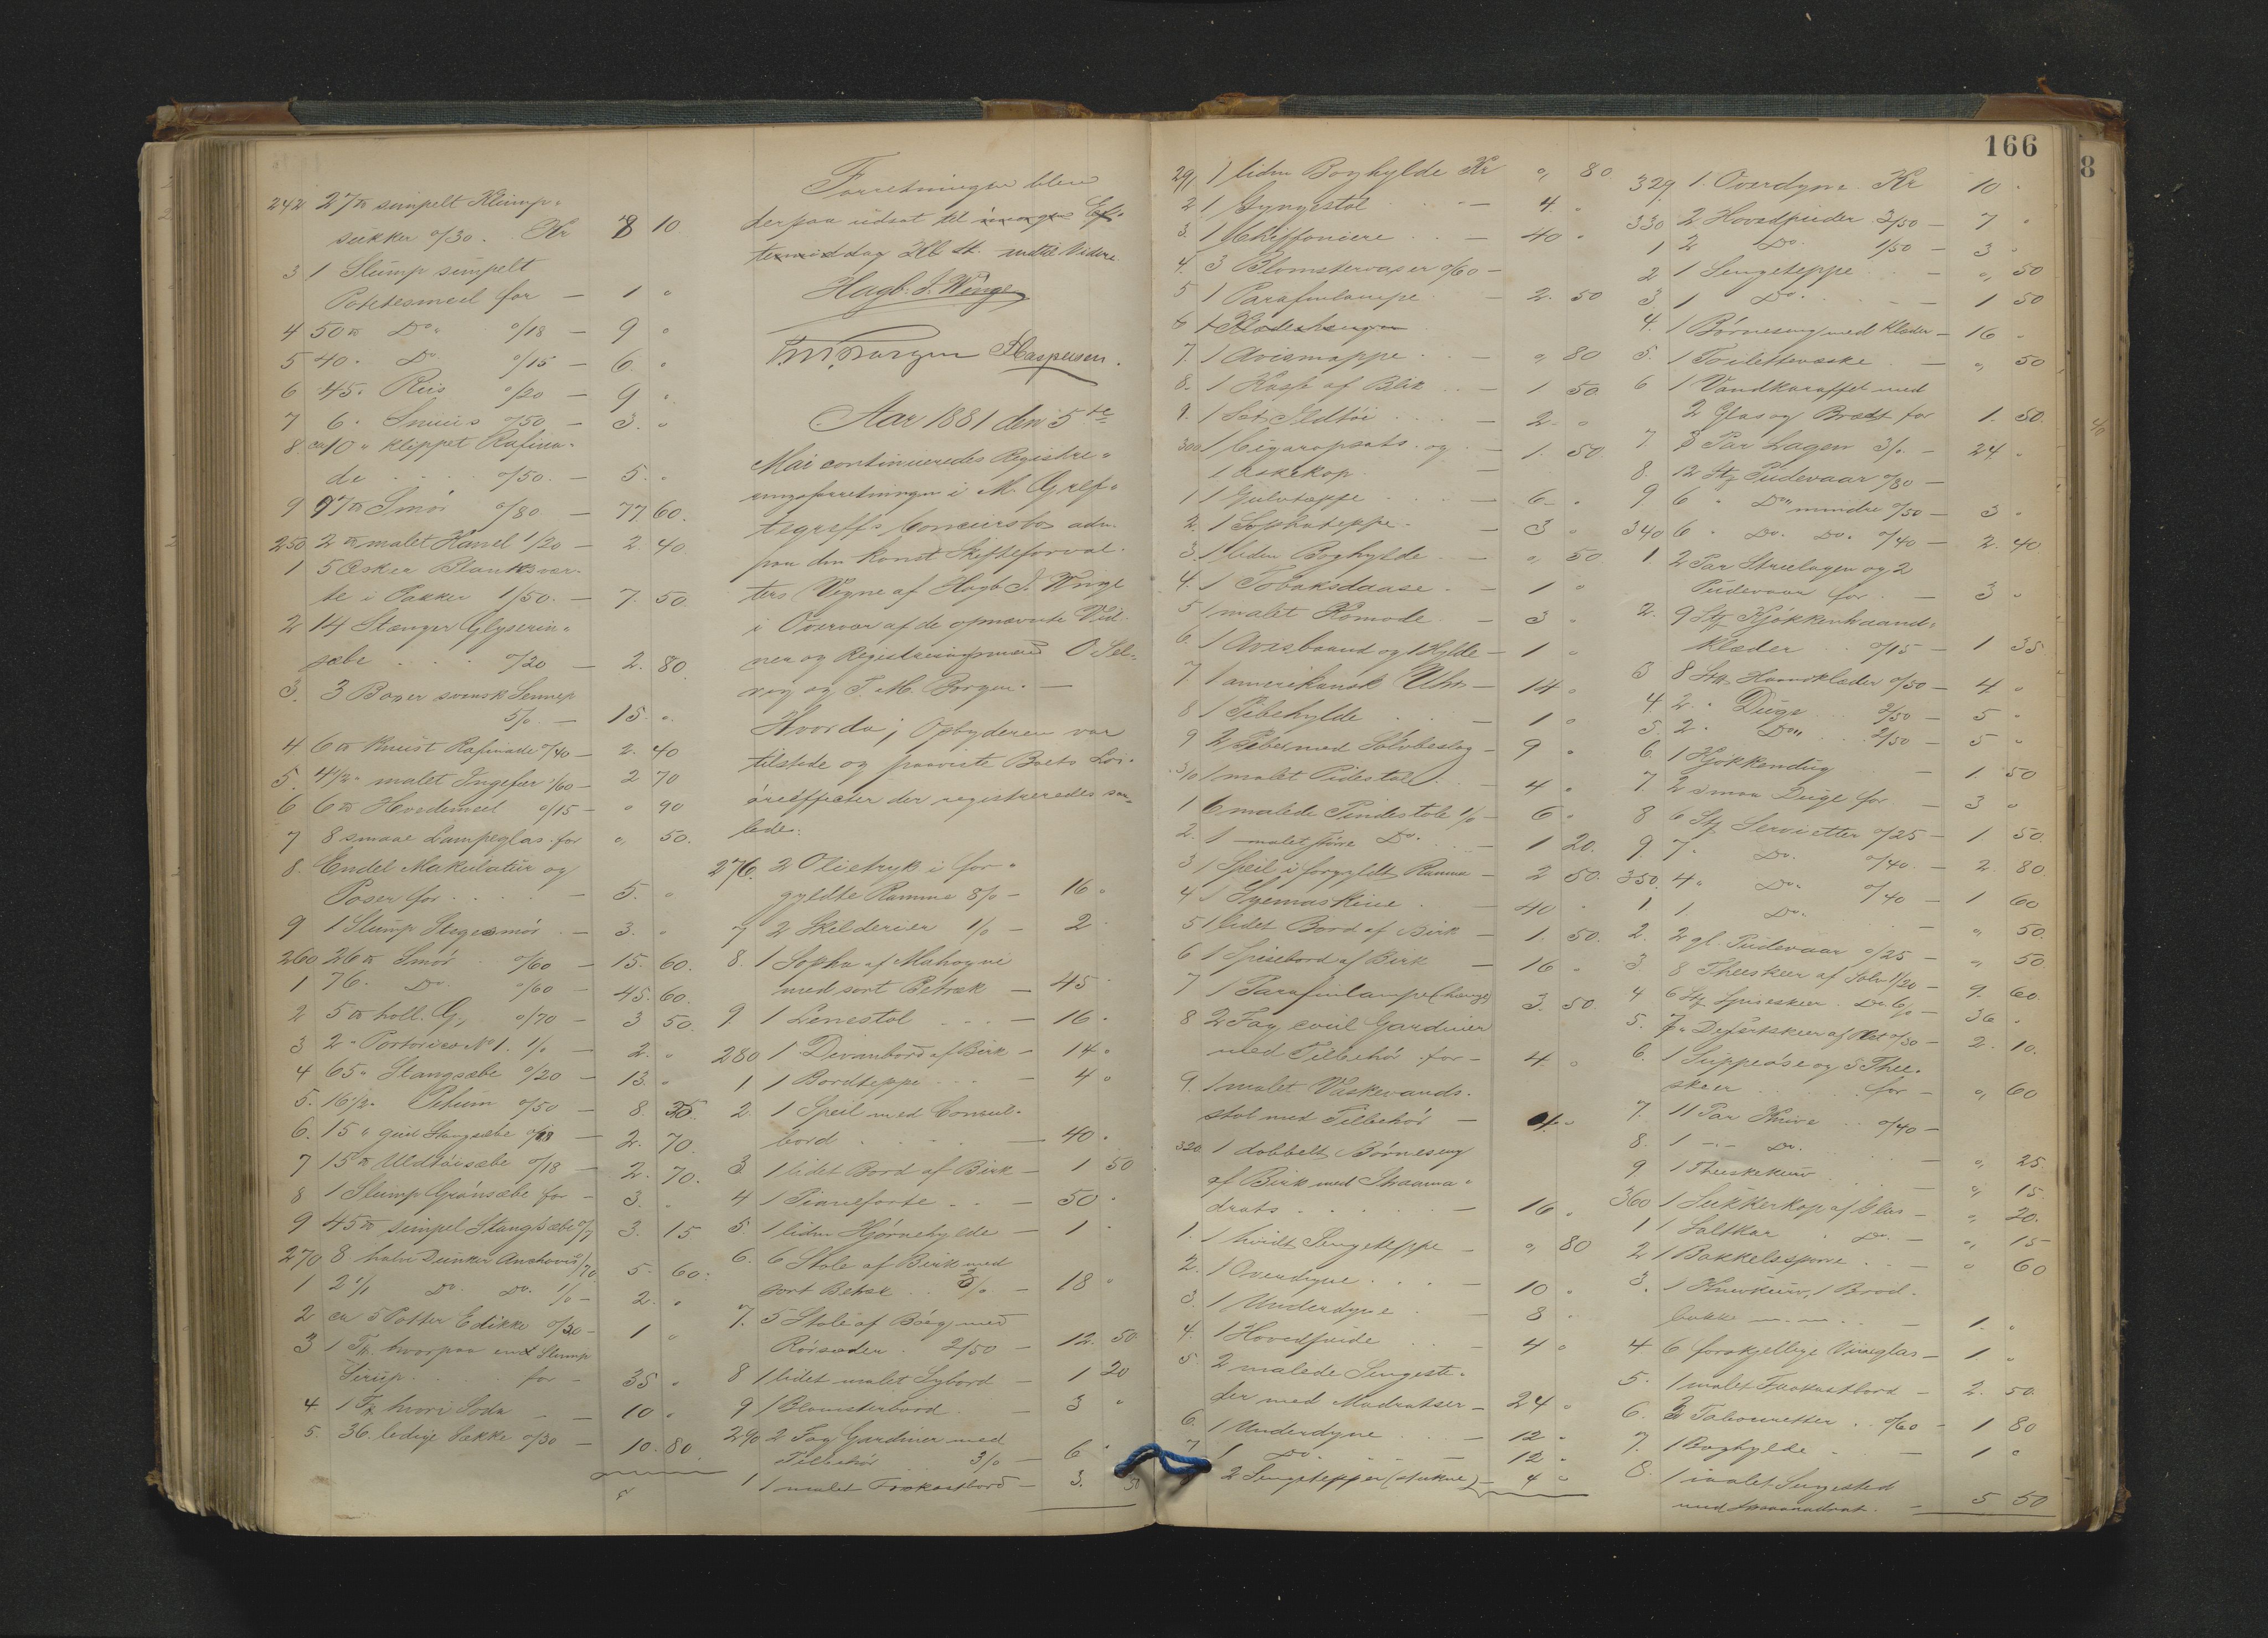 242 27 ℔ simpelt Klump-
sukker o/30. Kr 8 10
3 1 Slump simpelt
Potetesmeel for — 1 "
4 50 ℔ Do o/18 — 9 "
5 40 " Do o/15 — 6. "
6 45 " Riis o/20 — 9 "
7 6 " o/50 — 3. "
8 ca 10 " klippet Rafina-
de . . . . o/50. — 5. "
9 97 ℔ Smør o/80. — 77 60.
250 2 ℔ malet Kanel 1/20 — 2 40
1 5 Æsker Blanksvær-
te i Pakker 1/50. — 7. 50.
2 14 Stænger Glyserin-
sæbe . . . o/20 — 2. 80.
3. 3 Boxer svensk Sennep
5/o. — 15. "
4 6 ℔ knust Rafinade o/40 — 2. 40
5. 4 1/2 " malet Ingefær /60 — 2 70
6 6 ℔ Hvedemel o/15 — " 90
7 8 smaae Lampeglas for " 50.
8. Endel Makulatur og
Poser for . . . . — 5. "
9 1 Slump Stegesmør . — 3. "
260 26 ℔ Smør . o/60 — 15. 60.
1 76 " Do o/60 — 45. 60.
2 5 ℔ holl. G, o/70 — 3 50.
3 2 " Portorico No 1. 1/o — 2. "
4 65 " Stangsæbe o/20 — 13. "
5. 16 1/2 " Petum o/50 — 8.
6. 15 " gul Stangsæbe o/18 — 2. 70.
7 15 ℔ Uldtøisæbe o/18 — 2. 70.
8 1 Slump Grønsæbe for — 3. "
9 45 ℔ simpel Stangsæbe o/7 3. 15
270 8 halve Dunker Anchovis /70 5. 60.
1 2 1/1 Do. Do. 1/o — 2. "
2 ca 5 Potter Edikke o/20 — 1 "
3 1 Fs. hvorpaa end Slump
Sirup . . . for — 35 "
4 1 Fs. hvori Soda — — 10 "
5. 36. ledige Sække o/30 — 10. 80.
Forretningen blev
derpaa udsat til imorgen Ef-
termiddag Kl 4. indtil Videre.
Hagb. J. Winge
T M Borgen Kaspersen.
Aar 1881 den 5te
Mai continueredes Registre-
ringsforretningen i M. Gref-
tegreffs Concursbo adm.
paa den konst Skifteforval-
ters Vegne af Hagb J. Winge
i Overvær af de opnævnte Vid-
ner og Registreringsmænd O Sel-
og T. M. Borgen. —
Hvorda; Opbyderen var
tilstede og paaviste Boets Løs-
øreeffecter der registreredes saa-
lede:
276. 2 Olietryk i for-
gyldte Ramme 8/o — 16 "
7 2 Skilderier 1/o — 2 "
8. 1 Sopha af Mahogni
med sort Betræk — 45 "
9. 1 Lenestol . . . — 16 "
280 1 Divanbord af Birk — 14 "
1 1 Bordteppe . . . — 4 "
2. 1 Speil med Consol-
bord . . . . — 40 "
3 1 lidet Bord af Birk — 1 50
4 1 Pianoforte . . — 50 "
5. 1 liden Hjørnehylde — 1 "
6. 6 Stole af Birk med
sort Betræk . . 3/o — 18 "
7. 5 Stole af Bøeg med
Rørsæder . 2/50 — 12. 50
8 1 lidet malet Sybord — 1 20
9 1 Blomsterbord . — 3 "
290 2 Fag Gardiner med
Tilbehør . 3/o — 6 "
1 1 malet Frokostbord — 3. 50
166
291 1 liden Boghylde Kr " 80
2 1 Gyngestol . . . — 4. "
3. 1 Chiffoniere . . — 40 "
4. 3 Blomstervaser o/60 —
5 1 Parafinlampe . — 2. 50
6 1 Klædeshenger
7. 1 Avismappe . . — " 80
8. 1 Kasse af Blik . . — 1 50
9. 1 Set Ildtøi . . . — 2. "
300 1 Cigaropsats og — 1. 50
1 Askekop. —
1 1 Gulvteppe . . . — 6. "
2. 1 Sophateppe . — 3 "
3 1 liden Boghylde — " 50
4. 1 Tobaksdaase . — 1 "
5 1 malet Komode — 3 "
6. 1 Avisbaand og 1 Hylde — 1 "
7 1 amerikansk Uhr — 14 "
8 1 Pibehylde . . — 1 "
9 2 Piber med Sølvbeslag — 9 "
310 1 malet Pidestal . — 4 "
1 6 malede Pindestole 1/o — 6 "
2. 1 malet større Do. . — 1 20.
3 1 Speil i forgyldt Ramme — 2 50.
4 1 Symaskine . — 40 "
5 1 lidet Bord af Birk — 1. 50.
6 1 Spisebord af Birk — 16 "
7 1 Parafinlampe (hænge) 3. 50.
8 2 Fag Gardiner
med Tilbehør for — 4. "
9 1 malet Vaskevands-
stol med Tilbehør — 4. "
320 1 dobbelt Børneseng
af Birk med Straama-
drats . . . . — 16 "
1. 1 hvidt Sengeteppe — " 80
2. 1 Overdyne . . . — 10 "
3. 1 Underdyne . — 8 "
4. 1 Hovedpude . . — 4 "
5. 2 malede Sengeste-
der med Madratser — 24 "
6. 1 Underdyne . . — 12 "
7 1 Do. . . — 12 "
2 Sengetepper (stukne) — 4 "
329. 1. Overdyne. Kr 10 "
330 2 Hovedpuder 3/50 — 7 "
1 2 Do. 1/50 — 3 "
2 1 Sengeteppe . . — " 50
3. 1 Do. . . . — 1 50
4. 1 Børneseng med Klæder — 16 "
5. 1 Toilettevaske . — " 50
6 1 Vandkaraffel med
2 Glas og Bræt for 1. 50.
7. 8 Par Lagen 3/o. — 24. "
8. 12 Stk Pudevaar o/80 —
9. 6 " Do mindre o/50 — 3 "
340 6 " Do. Do. o/40 — 2. 40
1. 2 Par Strielagen og 2
Pudevaar for . — 3 "
2. 9 Stk Kjøkkenhaand-
klæder . . o/15 — 1 35
3 8 Stk Haandklæder o/50 — 4 "
4 2 " Duge . . 2/50 — 5 "
5. 2 " Do . . 2/50 — 5 "
6. 1 Kjøkkendug — 1. 50
7. 2 smaa Duge for — 3 "
8 6 Stk Servietter o/25 — 1 50.
9. 7 " Do. o/40. — 2 80.
350. 4 " Do. o/40 — 1 60
1 1. Do. . — " 50.
2. 2 gl. Pudevaar o/25 — " 50.
3. 8 Theeskeer af Sølv 1/20 — 9. 60.
4 6 Stk Spiseskeer Do. 6/o — 36 "
5. 7 " Desertskeer af Plet o/30 — 2. 10.
6. 1 Suppeøse og 5 Thee-
skeer . . . for — " 60
7. 11 Par Knive . . o/40 —
8. 1 — " — Do. — " 25
9. 1 Theeskekurv . . — " 15.
360 1 Sukkerkop af Glas — " 20.
1 1 Saltkar . Do. — " 15
2 1 Bakkelsspore . . — " 60
3. 1 Knivkurv, 1 Brød-
bakke m. m. . . — 1. "
4 6 forskjellige Viinglas — 1. "
5. 1 malet Frokostbord — 2. 50.
6. 3 Tabouretter . . o/60 — 1 80
7. 1 Boghylde — 1 "
8. 1 malet Sengested
med Straamadrats. — 5 50
8